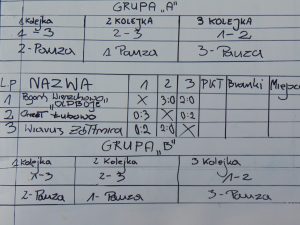 GRUPA „A"
1 Kolejka 2 KOLEJKA 3 KOLEJKA
1-3 2-3 1-2
2-Pauza 1 Pauza 3-Pauza
LP NAZWA 1 2 3 PKT Bramki Miejsce
1 X 3:0 2:0
2 0:3 X 0:2
3 0:2 2:0 X
GRUPA „B"
1 Kolejka 2 Kolejka 3 Kolejka
1-3 2-3 1-2
2-Pauza 1-Pauza 3-Pauza